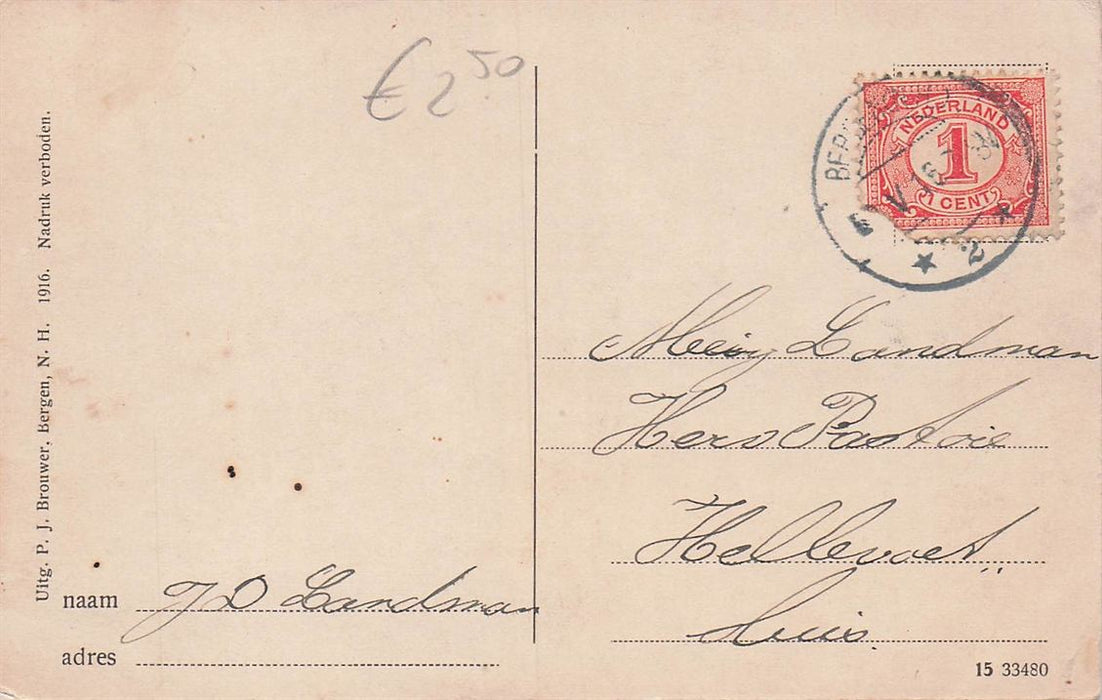 € 2 50
NEDERLAND
1
1 CENT
2
Landman
Hers Pastorie
Hellevoet
sluis.
Uitg. P. J. Brouwer. Bergen, N. H. 1916. Nadruk verboden.
naam J D Landman
adres
15 33480